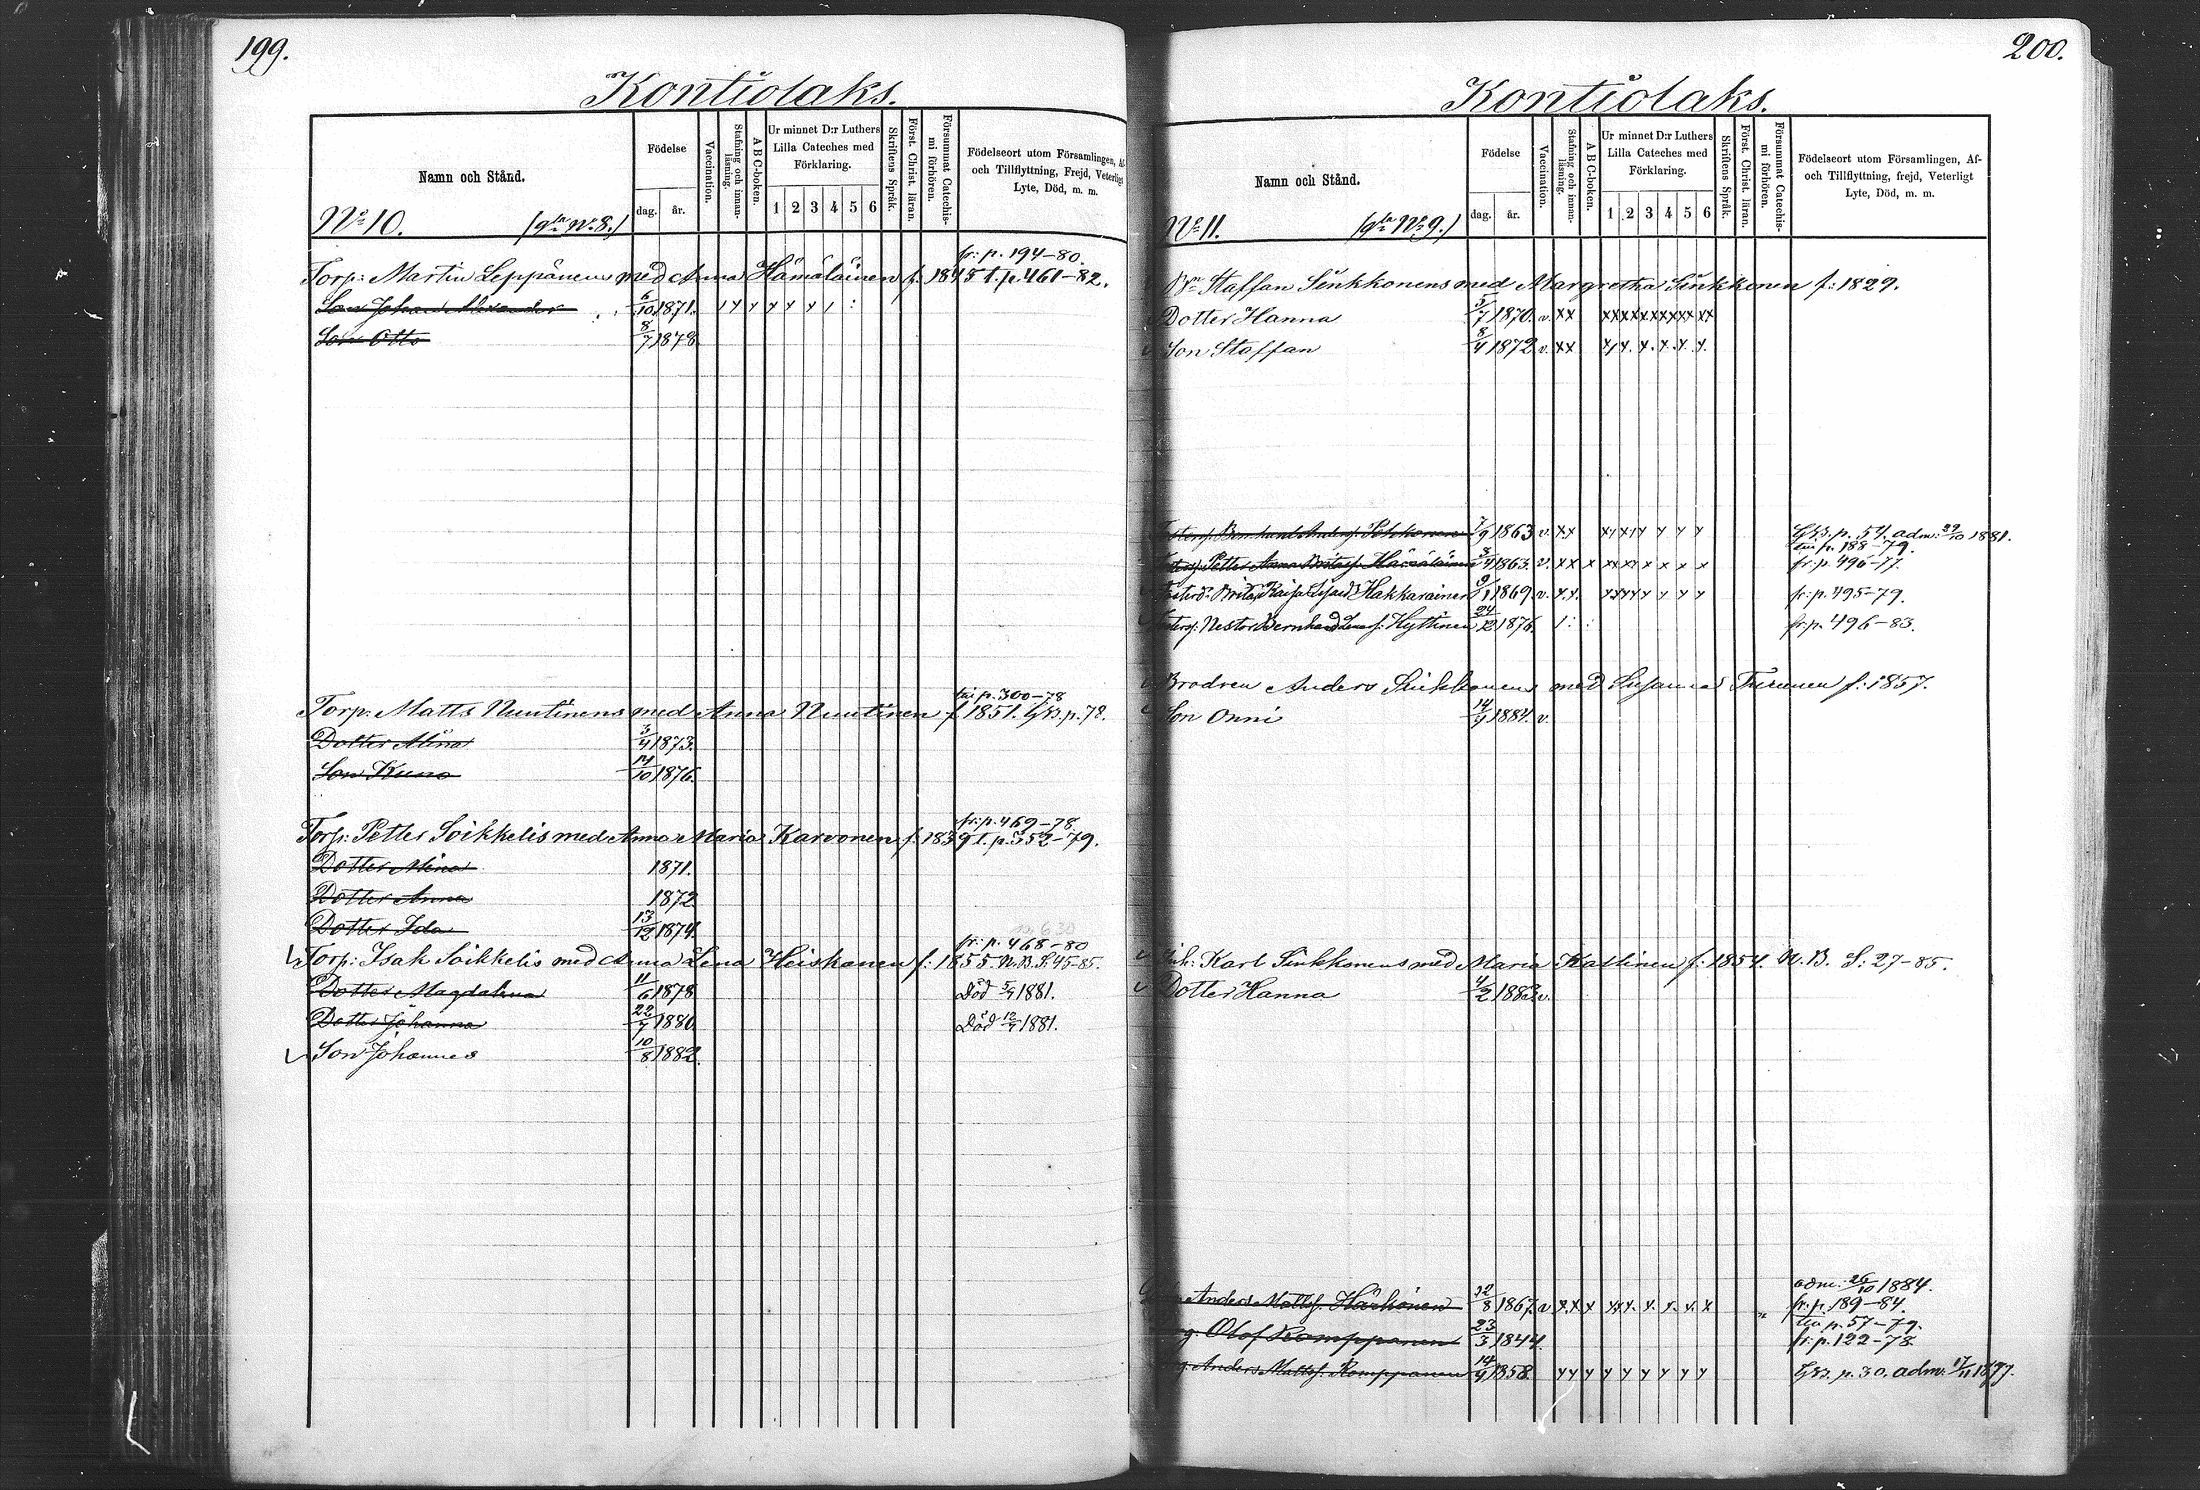 199.
Kontiolaks.
Namn och Stånd.
Födelse
dag. år.
Vaccination.
Stafning och innanläsning.
A B C-boken.
Ur minnet D:r Luthers
Lilla Cateches med
Förklaring.
1 2 3 4 5 6
Skriftens Språk.
Först. Christ. läran.
Försummat Catechismi förhören.
Födelseort utom Församlingen, Af-
och Tillflyttning, Frejd, Veterligt
Lyte, Död, m. m.
No 10. (gla No 8.)
fr: p. 194-80.
Torp: Martin Leppänens med Anna Hämäläinen f: 1845 t. p. 461-82.
Son Johan Alexander 6/10 1871.
Son Otto 8/7 1878
till p. 300-78
Torp: Matts Nuutinens med Anna Nuutinen f. 1851. Gb. p. 78.
Dotter Alina 3/4 1873.
Son Kuno 14/10 1876.
fr: p. 469-78.
Torp: Petter Soikkelis med Anna Maria Karvonen f: 1839 t. p. 352-79.
Dotter Mina 1871.
Dotter Anna 1872
Dotter Ida 13/12 1874.
fr: p. 468-80
Torp: Isak Soikkelis med Anna Lena Heiskanen f: 1855. N.B. S. 45-85.
Dotter Magdalena 11/6 1878 Död 5/7 1881.
Dotter Johanna 22/7 1880 Död 12/7 1881.
Son Johannes 10/8 1882.
200.
Kontiolaks.
Namn och Stånd.
Födelse
dag. år.
Vaccination.
Stafning och innanläsning.
A B C-boken.
Ur minnet D:r Luthers
Lilla Cateches med
Förklaring.
1 2 3 4 5 6
Skriftens Språk.
Först. Christ. läran.
Försummat Catechismi förhören.
Födelseort utom Församlingen, Af-
och Tillflyttning, frejd, Veterligt
Lyte, Död, m. m.
No 11. (gla No 9.)
Staffan Sinkkonens med Margretha Sinkkonen f: 1829.
Dotter Hanna 5/7 1870. v. xx
Son Staffan 8/4 1872 v. xx
7/9 1863 v. xx Gb. p. 54. adm: 29/10 1881.
till p. 188-79.
3/4 1863. v. xx x fr: p. 496-77.
Brita Kaisa Hakkarainen 9/1 1869 v. x.x. fr: p. 495-79.
Nestor Bernhard Hyttinen 24/12 1876. fr: p. 496-83.
Brodren Anders Sinkkonens med Susanna Turunen f: 1857.
Son Onni 14/9 1884. v.
Karl Sinkkonens med Maria Kattinen f: 1854. N.B. S: 27-85.
Dotter Hanna 4/2 1883 v.
adm: 26/10 1884.
Anders Mattsf. Härkönen 12/8 1867. v x.x x fr: p. 189-84.
till p. 57-79.
Olof Romppanen 23/3 1844. fr: p. 122-78.
Anders Mattsf. Romppanen 14/9 1858. Gb. p. 30. adm: 17/11 1877.